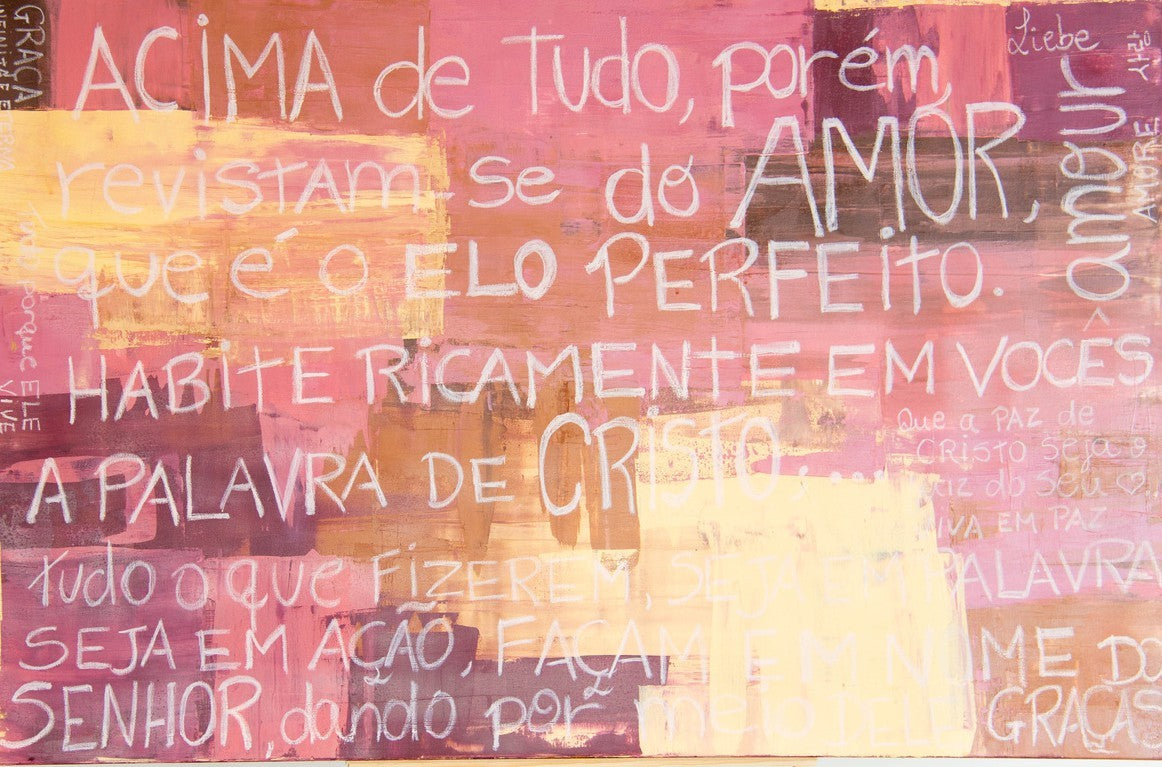 ACIMA de TUDO, porém,
revistam-se do AMOR,
que é o ELO PERFEITO.
HABITE RICAMENTE EM VOCES
A PALAVRA DE CRISTO, ....
tudo o que FIZEREM, SEJA EM PALAVRA
SEJA EM AÇÃO, FAÇAM EM NOME DO
SENHOR, dando por meio DELE GRAÇAS
Liebe
amour
AMORE
Que a PAZ de
CRISTO seja o
do seu ♡..
VIVA EM PAZ
GRAÇA
porque ELE
VIVE